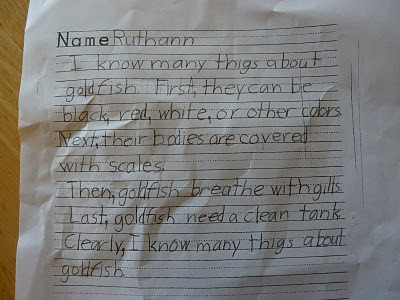 Name Ruthann
I know many thigs about
goldfish. First, they can be
black, red, white, or other colors.
Next, their bodies are covered
with scales.
Then, goldfish breathe with gills.
Last, goldfish need a clean tank.
Clearly, I know many thigs about
goldfish.